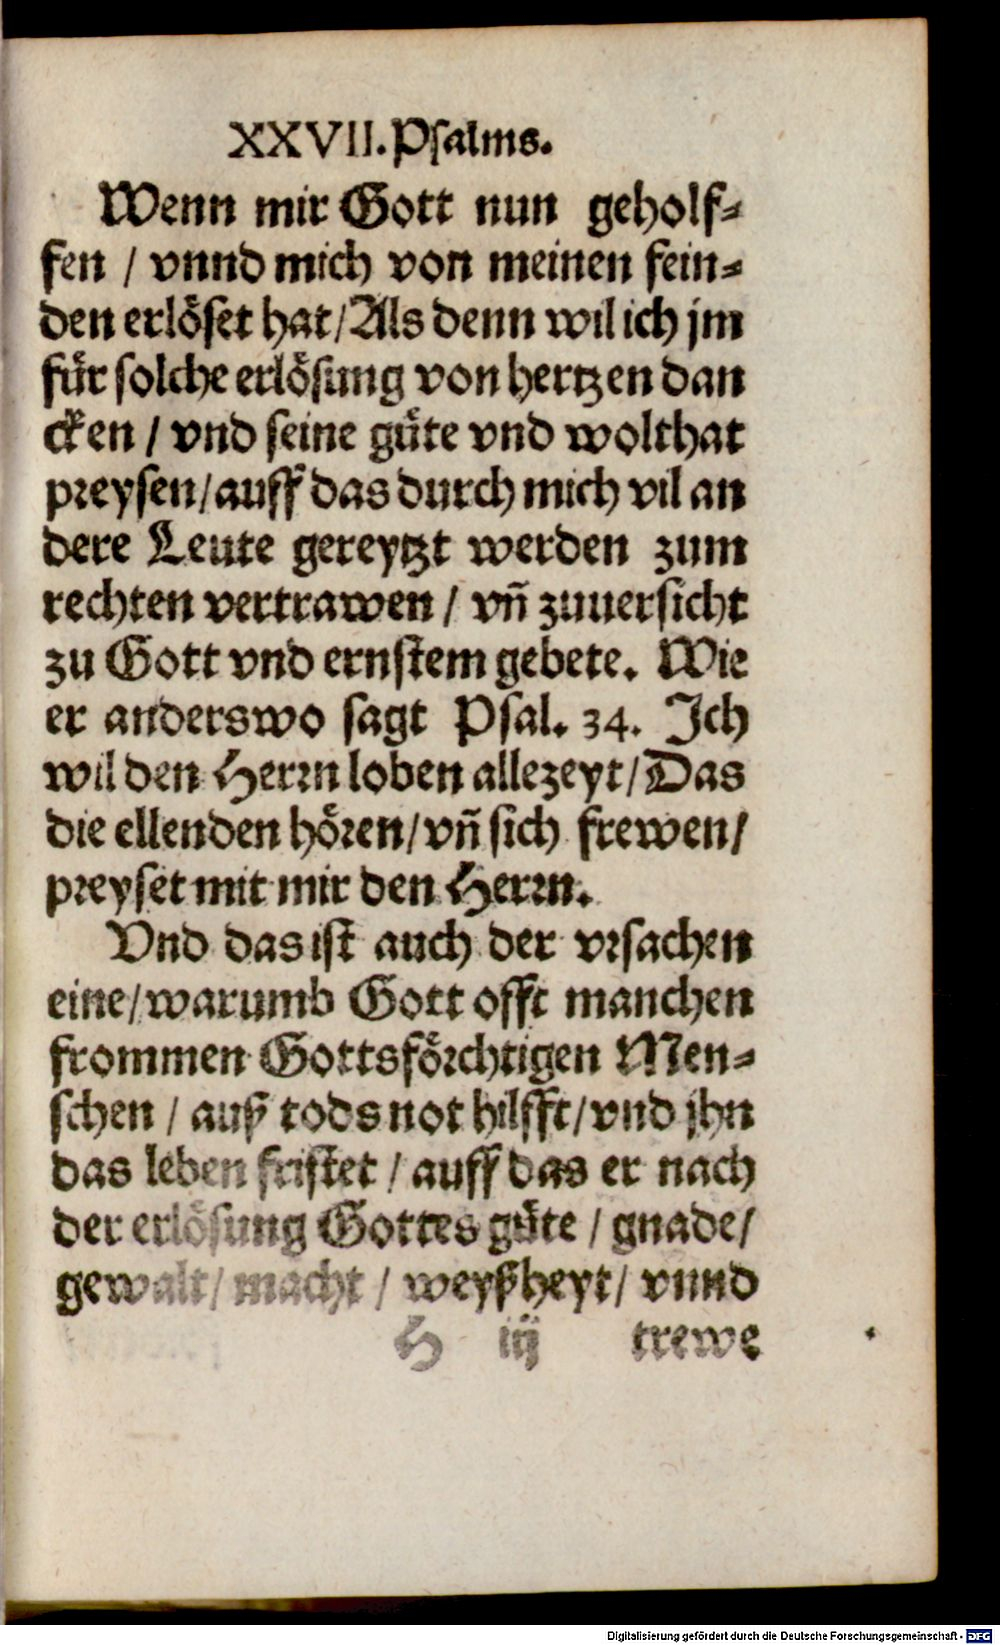 XXVII. Psalms.
Wenn mir Gott nun geholf⸗
fen / vnnd mich von meinen fein⸗
den erlöset hat / Als denn wil ich jm
für solche erlösung von hertzen dan
cken / vnd seine güte vnd wolthat
preysen / auff das durch mich vil an
dere Leute gereytzt werden zum
rechten vertrawen / vñ zuuersicht
zu Gott vnd ernstem gebete. Wie
er anderswo sagt Psal. 34. Ich
wil den Herrn loben allezeyt / Das
die ellenden hören / vñ sich frewen /
preyset mit mir den Herrn.
Vnd das ist auch der vrsachen
eine / warumb Gott offt manchen
frommen Gottsförchtigen Men⸗
schen / auß tods not hilfft / vnd jhn
das leben fristet / auff das er nach
der erlösung Gottes güte / gnade /
gewalt / macht / weyßheyt / vnnd
H iij trewe
Digitalisierung gefördert durch die Deutsche Forschungsgemeinschaft - DFG